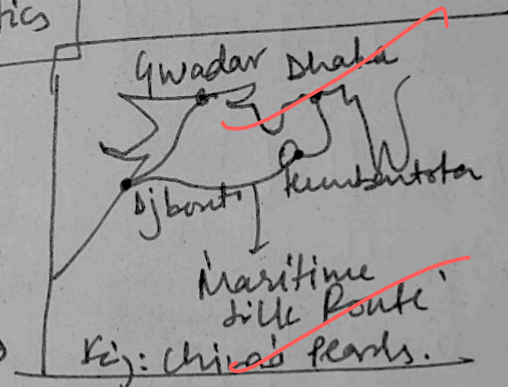 tics
Gwadar Dhaka
Djbouti Humbantota
Maritime
Silk Route
Fig: China's Pearls.